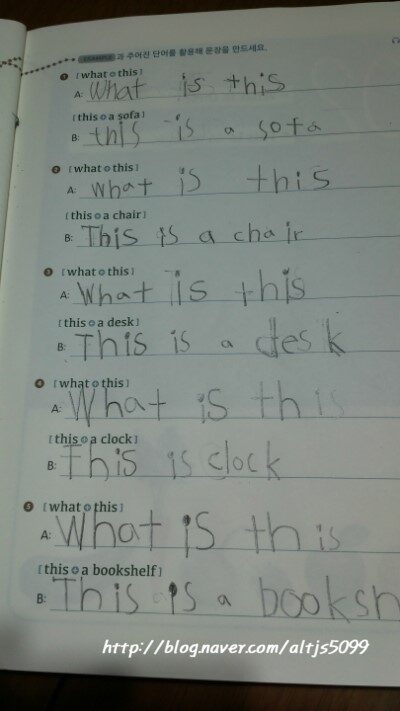 EXAMPLE 과 주어진 단어를 활용해 문장을 만드세요.
1 [what + this]
A: What is this
[this + a sofa]
B: this is a sofa
2 [what + this]
A: what is this
[this + a chair]
B: This is a chair
3 [what + this]
A: What is this
[this + a desk]
B: This is a desk
4 [what + this]
A: What is this
[this + a clock]
B: This is clock
5 [what + this]
A: What is this
[this + a bookshelf]
B: This is a booksh
http://blog.naver.com/altjs5099